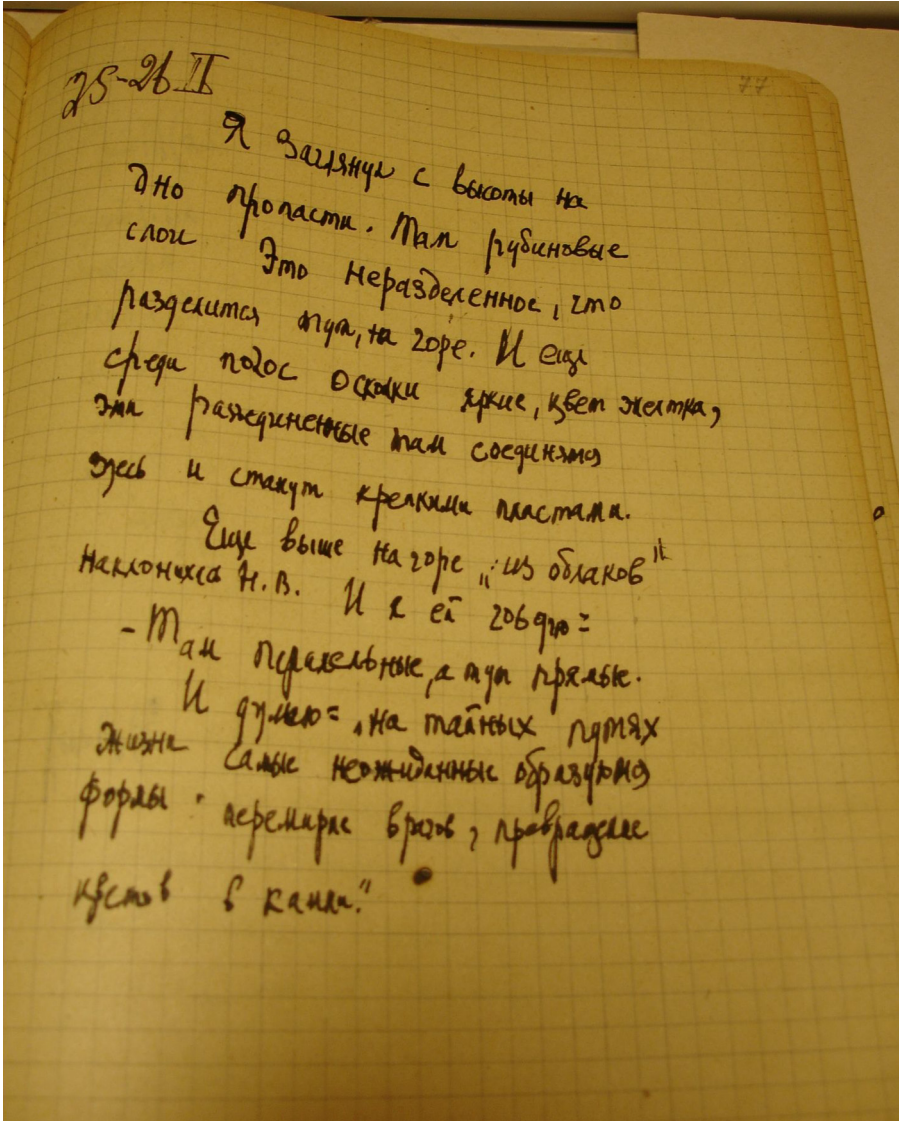 25-26 II
77
Я заглянул с высоты на
дно пропасти. Там рубиновые
слои Это неразделенное, что
разделится тут, на горе. И еще
среди полос осколки яркие, цвет желтка,
эти разъединенные там соединятся
здесь и станут крепкими пластами.
Еще выше на горе „из облаков"
наклонился Н.В. И я ей говорю:
- Там паралельные, а тут прямые.
И думаю: „на тайных путях
жизни самые неожиданные образуются
формы: перемирие врагов, превращение
в камни."